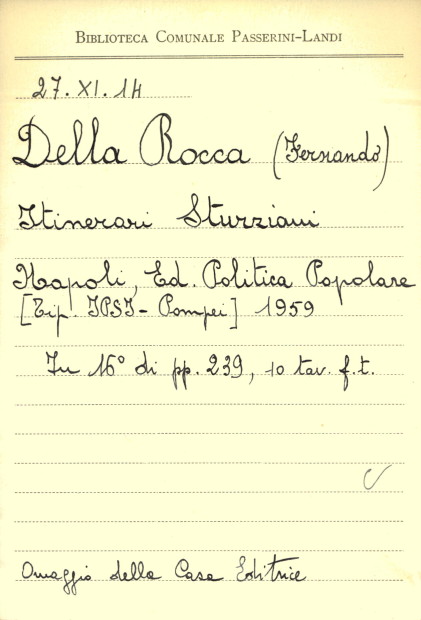 BIBLIOTECA COMUNALE PASSERINI-LANDI
27. XI. 14
Della Rocca (Fernando)
Itinerari Sturziani
Napoli, Ed. Politica Popolare
[Tip. IPSI - Pompei] 1959
In 16° di pp. 239, 10 tav. f.t.
Omaggio della Casa Editrice